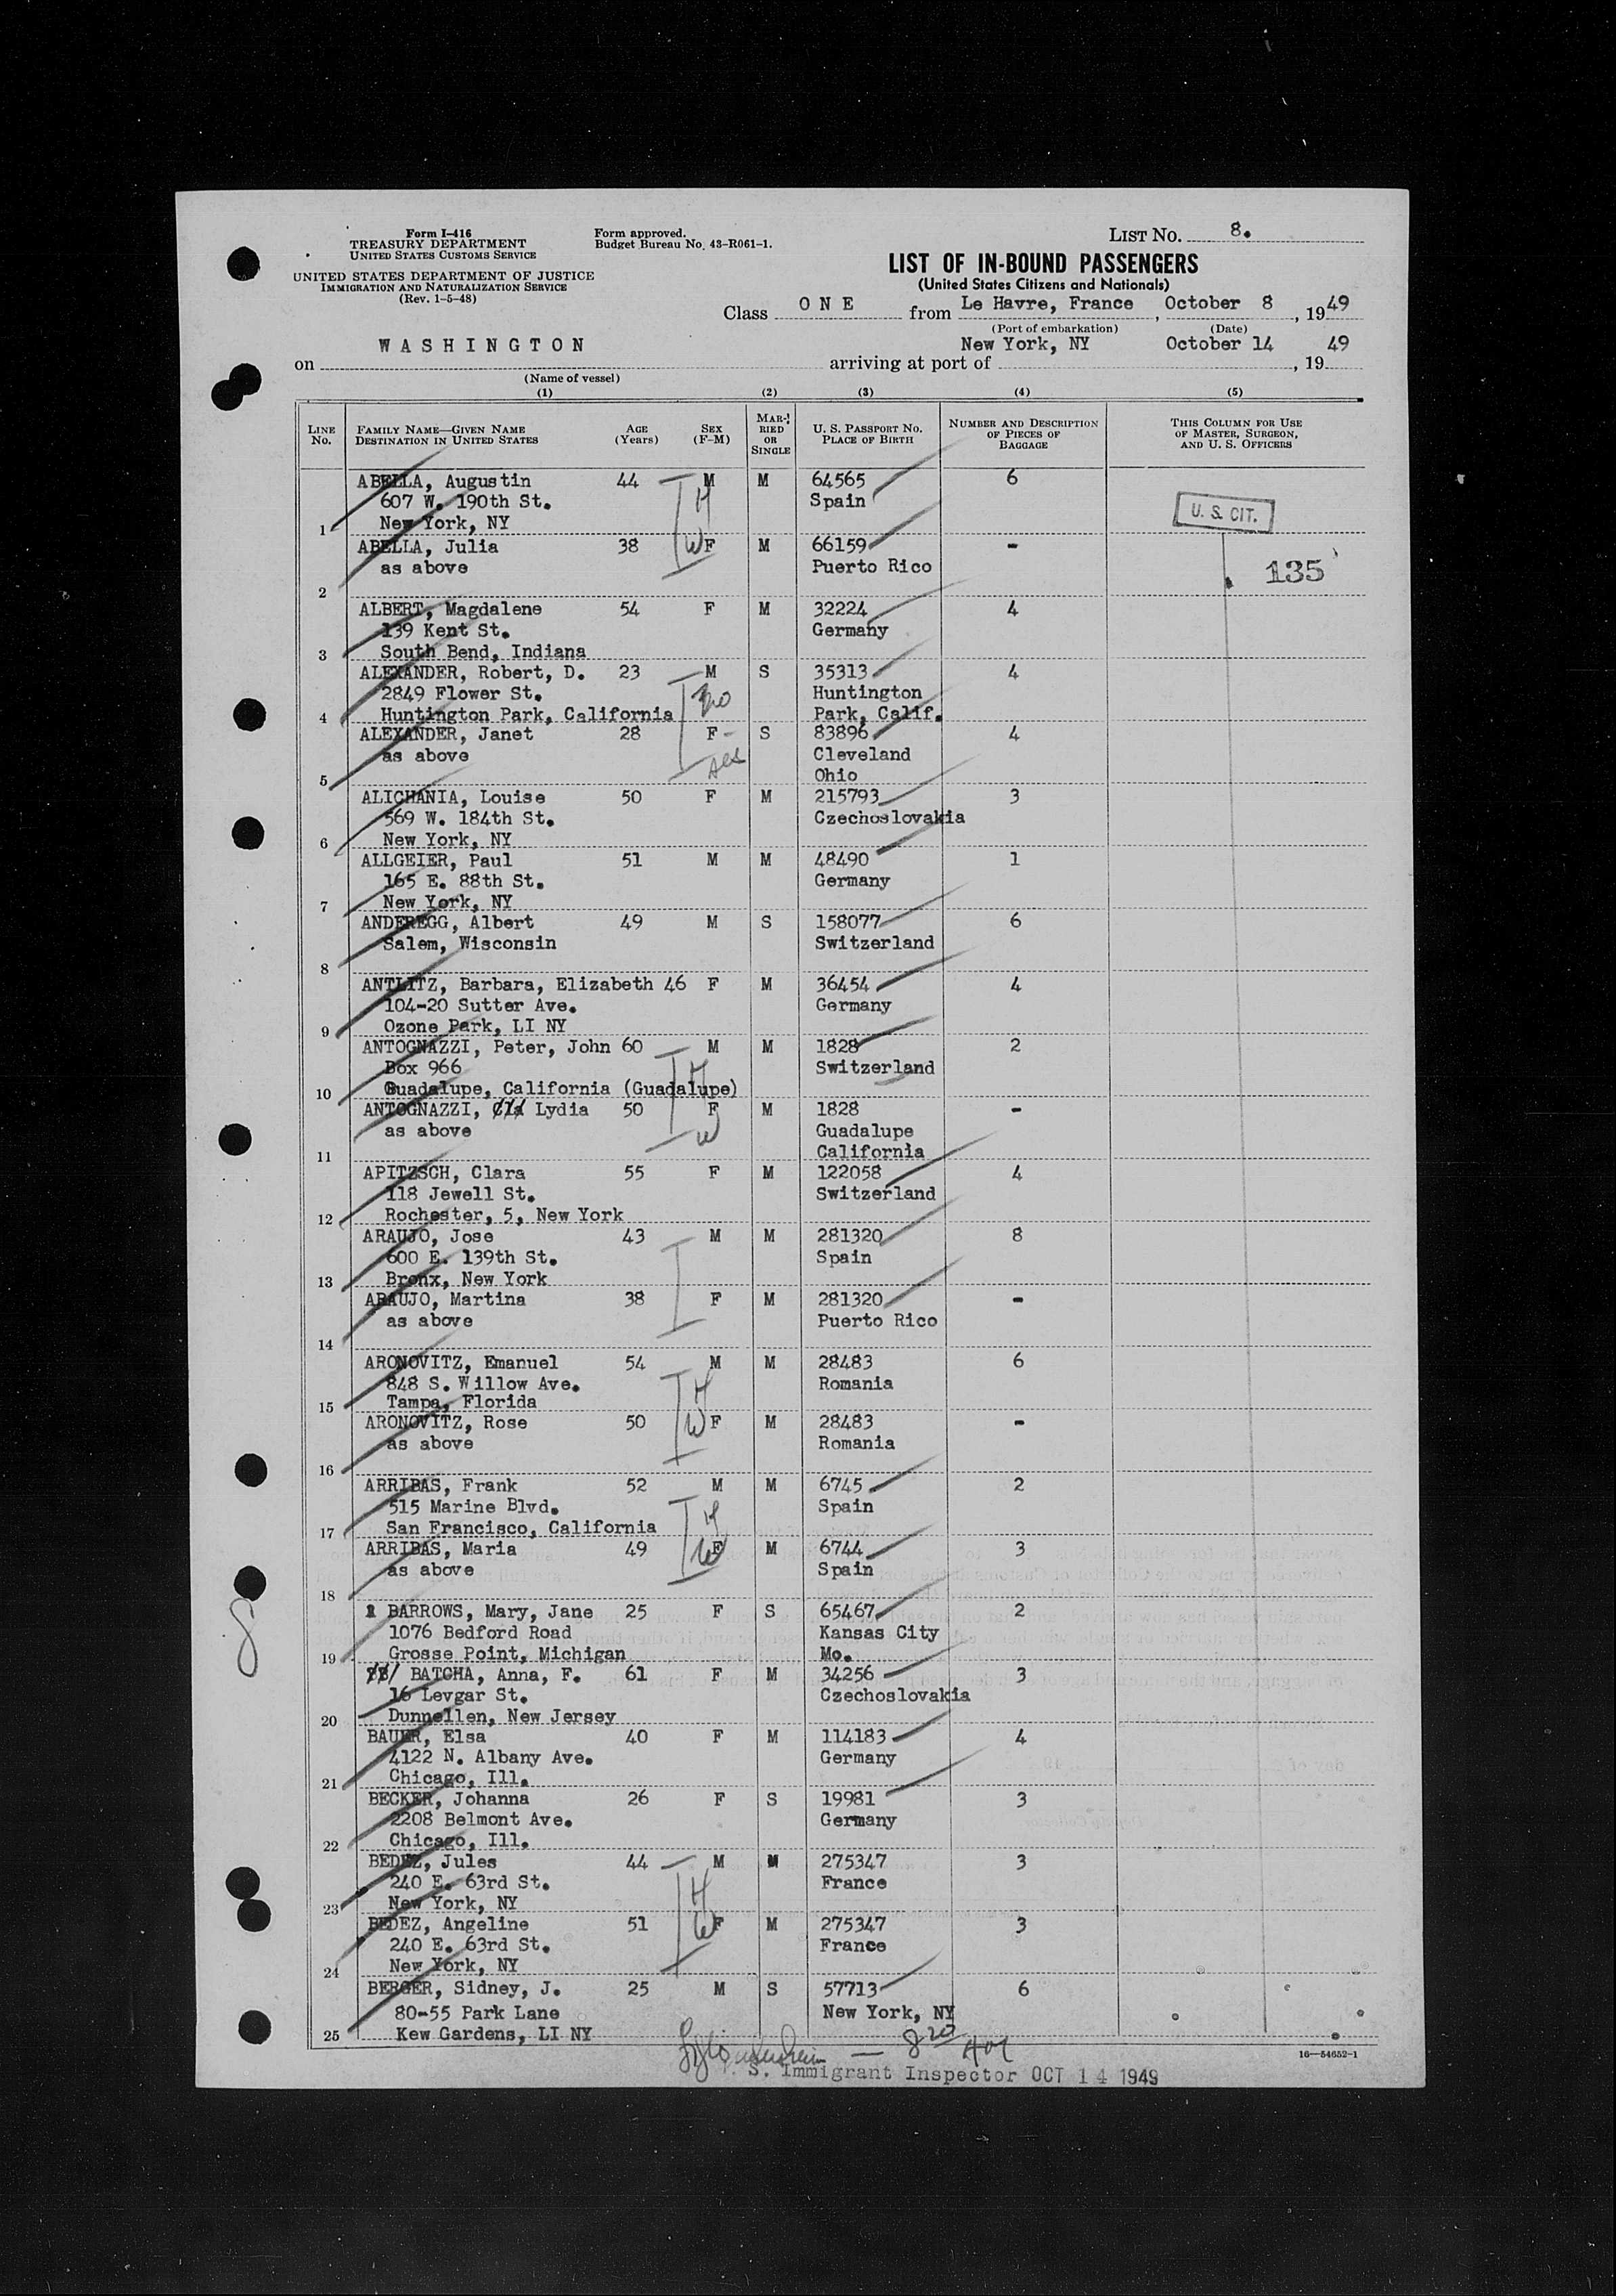 Form I-416
TREASURY DEPARTMENT
UNITED STATES CUSTOMS SERVICE
UNITED STATES DEPARTMENT OF JUSTICE
IMMIGRATION AND NATURALIZATION SERVICE
(Rev. 1-5-48)
Form approved.
Budget Bureau No. 43-R061-1.
LIST NO. 8.
LIST OF IN-BOUND PASSENGERS
(United States Citizens and Nationals)
Class ONE from Le Havre, France, October 8, 1949
(Port of embarkation) (Date)
on WASHINGTON arriving at port of New York, NY October 14, 1949
(Name of vessel)
(1) (2) (3) (4) (5)
LINE NO. FAMILY NAME—GIVEN NAME DESTINATION IN UNITED STATES AGE (Years) SEX (F-M) MARRIED OR SINGLE U. S. PASSPORT NO. PLACE OF BIRTH NUMBER AND DESCRIPTION OF PIECES OF BAGGAGE THIS COLUMN FOR USE OF MASTER, SURGEON, AND U. S. OFFICERS
ABELLA, Augustin 44 M M 64565 6
607 W. 190th St. H Spain U. S. CIT.
1 New York, NY
ABELLA, Julia 38 W F M 66159 -
as above Puerto Rico 135
2
ALBERT, Magdalene 54 F M 32224 4
139 Kent St. Germany
3 South Bend, Indiana
ALEXANDER, Robert, D. 23 M S 35313 4
2849 Flower St. Huntington
4 Huntington Park, California Park, Calif.
ALEXANDER, Janet 28 F S 83896 4
as above Cleveland
5 Ohio
ALICHANIA, Louise 50 F M 215793 3
569 W. 184th St. Czechoslovakia
6 New York, NY
ALLGEIER, Paul 51 M M 48490 1
165 E. 88th St. Germany
7 New York, NY
ANDEREGG, Albert 49 M S 158077 6
Salem, Wisconsin Switzerland
8
ANTLITZ, Barbara, Elizabeth 46 F M 36454 4
104-20 Sutter Ave. Germany
9 Ozone Park, LI NY
ANTOGNAZZI, Peter, John 60 M M 1828 2
Box 966 H Switzerland
10 Guadalupe, California (Guadalupe)
ANTOGNAZZI, Lydia 50 F M 1828 -
as above W Guadalupe
11 California
APITZSCH, Clara 55 F M 122058 4
118 Jewell St. Switzerland
12 Rochester, 5, New York
ARAUJO, Jose 43 M M 281320 8
600 E. 139th St. Spain
13 Bronx, New York
ARAUJO, Martina 38 F M 281320 -
as above Puerto Rico
14
ARONOVITZ, Emanuel 54 M M 28483 6
848 S. Willow Ave. H Romania
15 Tampa, Florida
ARONOVITZ, Rose 50 W F M 28483 -
as above Romania
16
ARRIBAS, Frank 52 M M 6745 2
515 Marine Blvd. H Spain
17 San Francisco, California
ARRIBAS, Maria 49 W F M 6744 3
as above Spain
18
BARROWS, Mary, Jane 25 F S 65467 2
1076 Bedford Road Kansas City
19 Grosse Point, Michigan Mo.
BATCHA, Anna, F. 61 F M 34256 3
16 Levgar St. Czechoslovakia
20 Dunnellen, New Jersey
BAUER, Elsa 40 F M 114183 4
4122 N. Albany Ave. Germany
21 Chicago, Ill.
BECKER, Johanna 26 F S 19981 3
2208 Belmont Ave. Germany
22 Chicago, Ill.
BEDEZ, Jules 44 M M 275347 3
240 E. 63rd St. H France
23 New York, NY
BEDEZ, Angeline 51 W F M 275347 3
240 E. 63rd St. France
24 New York, NY
BERGER, Sidney, J. 25 M S 57713 6
80-55 Park Lane New York, NY
25 Kew Gardens, LI NY
8
16—54652-1
S. Immigrant Inspector OCT 14 1949